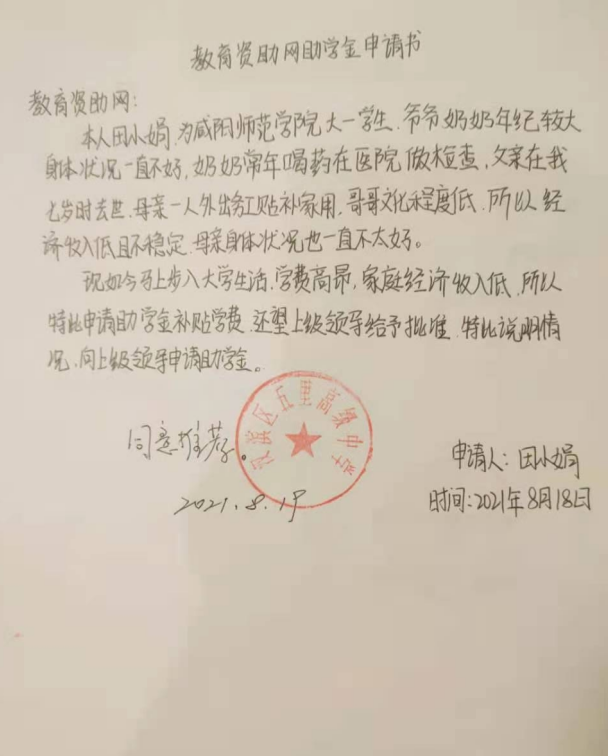 教育资助网助学金申请书
教育资助网:
本人田小娟,为咸阳师范学院大一学生.爷爷奶奶年纪较大
身体状况一直不好,奶奶常年喝药在医院做检查,父亲在我
七岁时去世.母亲一人外出务工贴补家用,哥哥文化程度低.所以经
济收入低且不稳定.母亲身体状况也一直不太好。
现如今马上步入大学生活.学费高昂,家庭经济收入低.所以
特此申请助学金补贴学费.还望上级领导给予批准.特此说明情
况,向上级领导申请助学金。
同意推荐。
汉滨区五里高级中学
申请人:田小娟
2021.8.19
时间:2021年8月18日